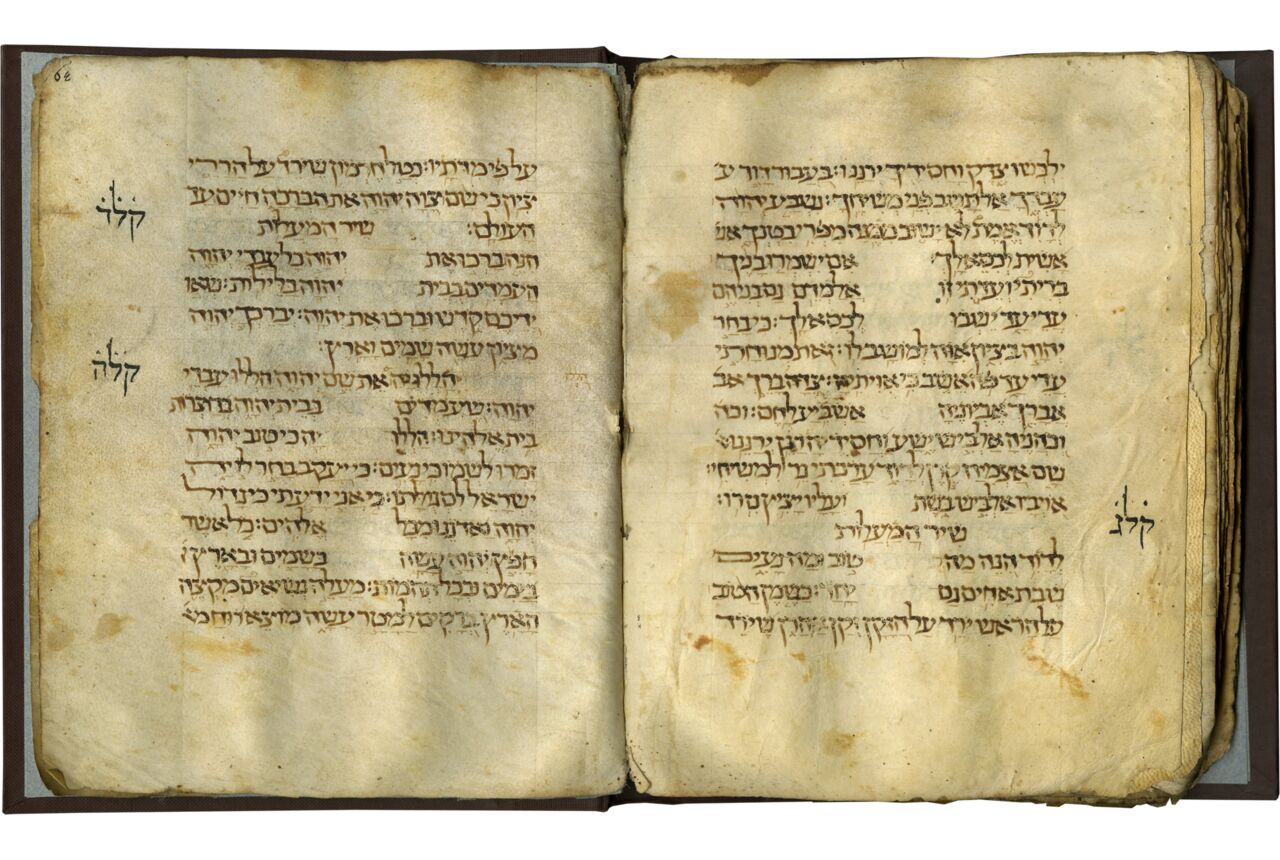 ילבשו צדק וחסידיך ירננו: בעבור דוד ע
עבדך אל תשב פני משיחך: נשבע יהוה
לדוד אמת לא ישוב ממנה מפרי בטנך אש
אשית לכסא לך אם ישמרו בניך
בריתי ועדתי זו אלמדם גם בניהם
עדי עד ישבו לכסא לך: כי בחר
יהוה בציון אוה למושב לו: זאת מנוחתי
עדי עד פה אשב כי אויתיה: צידה ברך אב
אברך אביוניה אשביע לחם: וכה
וכהניה אלביש ישע וחסידיה רנן ירננו:
שם אצמיח קרן לדוד ערכתי נר למשיחי:
אויביו אלביש בשת ועליו יציץ נזרו:
שיר המעלות
קלג
לדוד הנה מה טוב ומה נעים
שבת אחים גם יחד: כשמן הטוב
על הראש ירד על הזקן זקן אהרן שירד
64
על פי מדתיו: כטל חרמון שירד על הררי
ציון כי שם צוה יהוה את הברכה חיים עד
קלד
העולם: שיר המעלות
הנה ברכו את יהוה כל עבדי יהוה
העמדים בבית יהוה בלילות: שאו
ידיכם קדש וברכו את יהוה: יברכך יהוה
מציון עשה שמים וארץ:
קלה
הללויה את שם יהוה הללו עבדי
יהוה: שעמדים בבית יהוה בחצרות
בית אלהינו: הללו יה כי טוב יהוה
זמרו לשמו כי נעים: כי יעקב בחר לו יה
ישראל לסגלתו: כי אני ידעתי כי גדול
יהוה ואדננו מכל אלהים: כל אשר
חפץ יהוה עשה בשמים ובארץ
בימים וכל תהמות: מעלה נשיאים מקצה
הארץ ברקים למטר עשה מוצא רוח מא